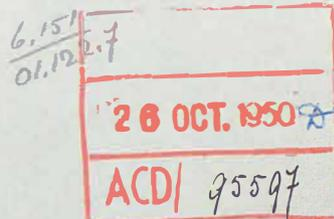 6.151
01.122.7
26 OCT. 1950
ACD/ 95597